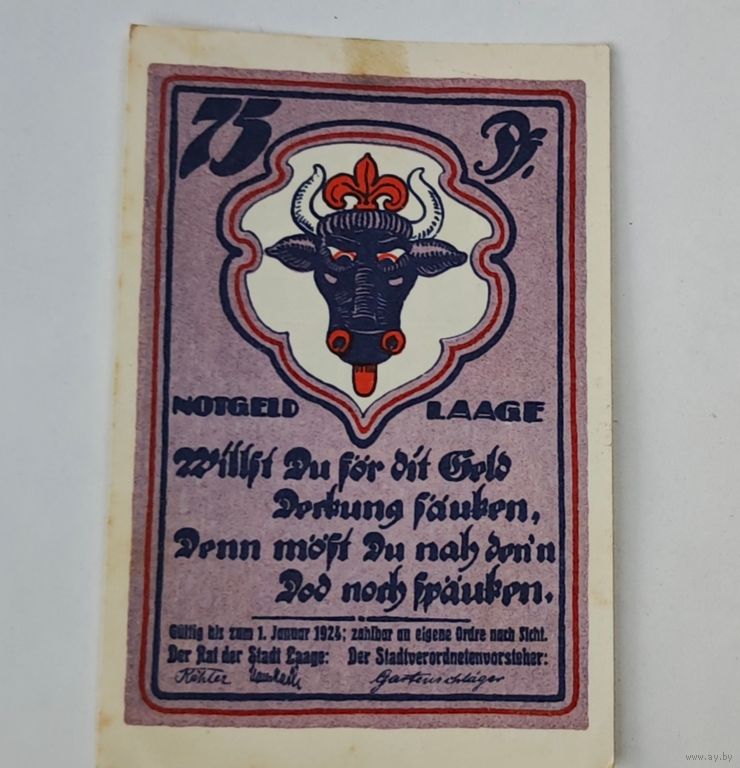 75 Pf.
NOTGELD LAAGE
Willst Du för dit Geld
Deckung säuken,
Denn möst Du nah den'n
Dod noch späuken.
Gültig bis zum 1. Januar 1924; zahlbar an eigene Ordre nach Sicht.
Der Rat der Stadt Laage: Der Stadtverordnetenvorsteher:
Köhler Gartenschläger
www.ay.by